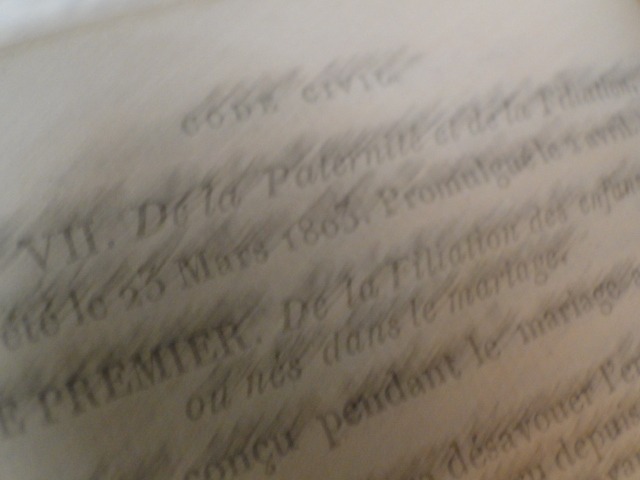 CODE CIVIL
VII. De la Paternité et de la Filiation
été le 23 Mars 1803. Promulgué le
PREMIER. De la Filiation des enfans
ou nés dans le mariage.
conçu pendant le mariage
désavouer
depuis